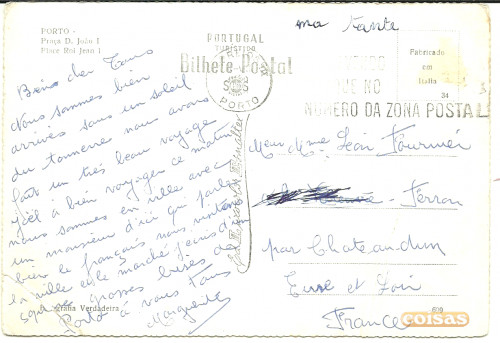 PORTO -
Praça D. João I
Place Roi Jean I
ma tante
PORTUGAL
TURÍSTICO
Bilhete Postal
PORTO
Fabricado
em
Italia
34
QUE NO
NÚMERO DA ZONA POSTAL
Bien chers Tous
Nous sommes bien
arrivés sous un soleil
du tonnerre nous avons
fait un très beau voyage
Joël à bien voyager ce matin
nous sommes en ville avec
un monsieur d'ici qui parle
bien le français nous visitons
la ville et le marché
grosses bises de
Porto à vous Tous
Marguerite
Meur Mme Jean Fournier
Ferron
par Chateaudun
Eure et Loir
France
Grana Verdadeira
600
coisas